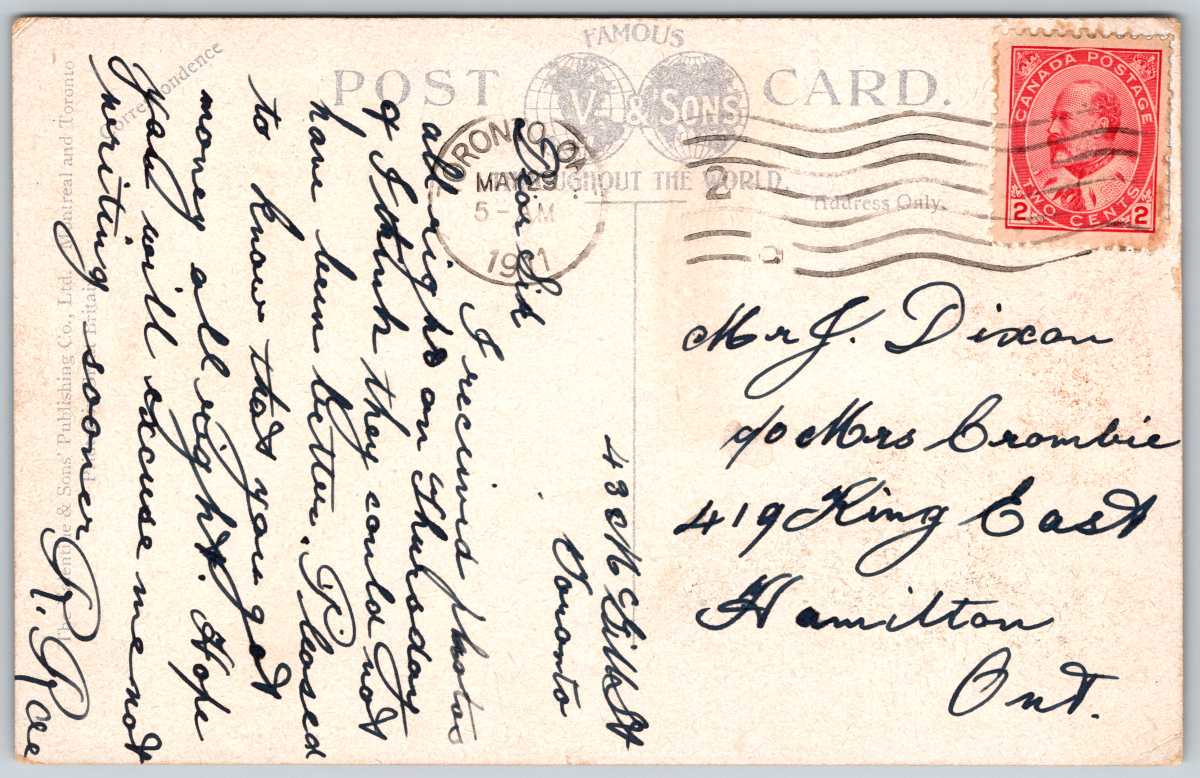 FAMOUS
POST CARD.
V & SONS
THROUGHOUT THE WORLD.
Correspondence
Address Only.
The Valentine & Sons' Publishing Co., Ltd. Montreal and Toronto
Printed in Great Britain
CANADA POSTAGE
2 2
TWO CENTS
TORONTO, ONT.
MAY 29
5 - AM
1911
2
43 McGill St
Toronto
Dear Sir
I received photos
all right on Thursday
& I think they could not
have been better. Pleased
to know that you got
money all right. Hope
you will excuse me not
writing sooner
R. Rae
Mr J. Dixon
c/o Mrs Crombie
419 King East
Hamilton
Ont.